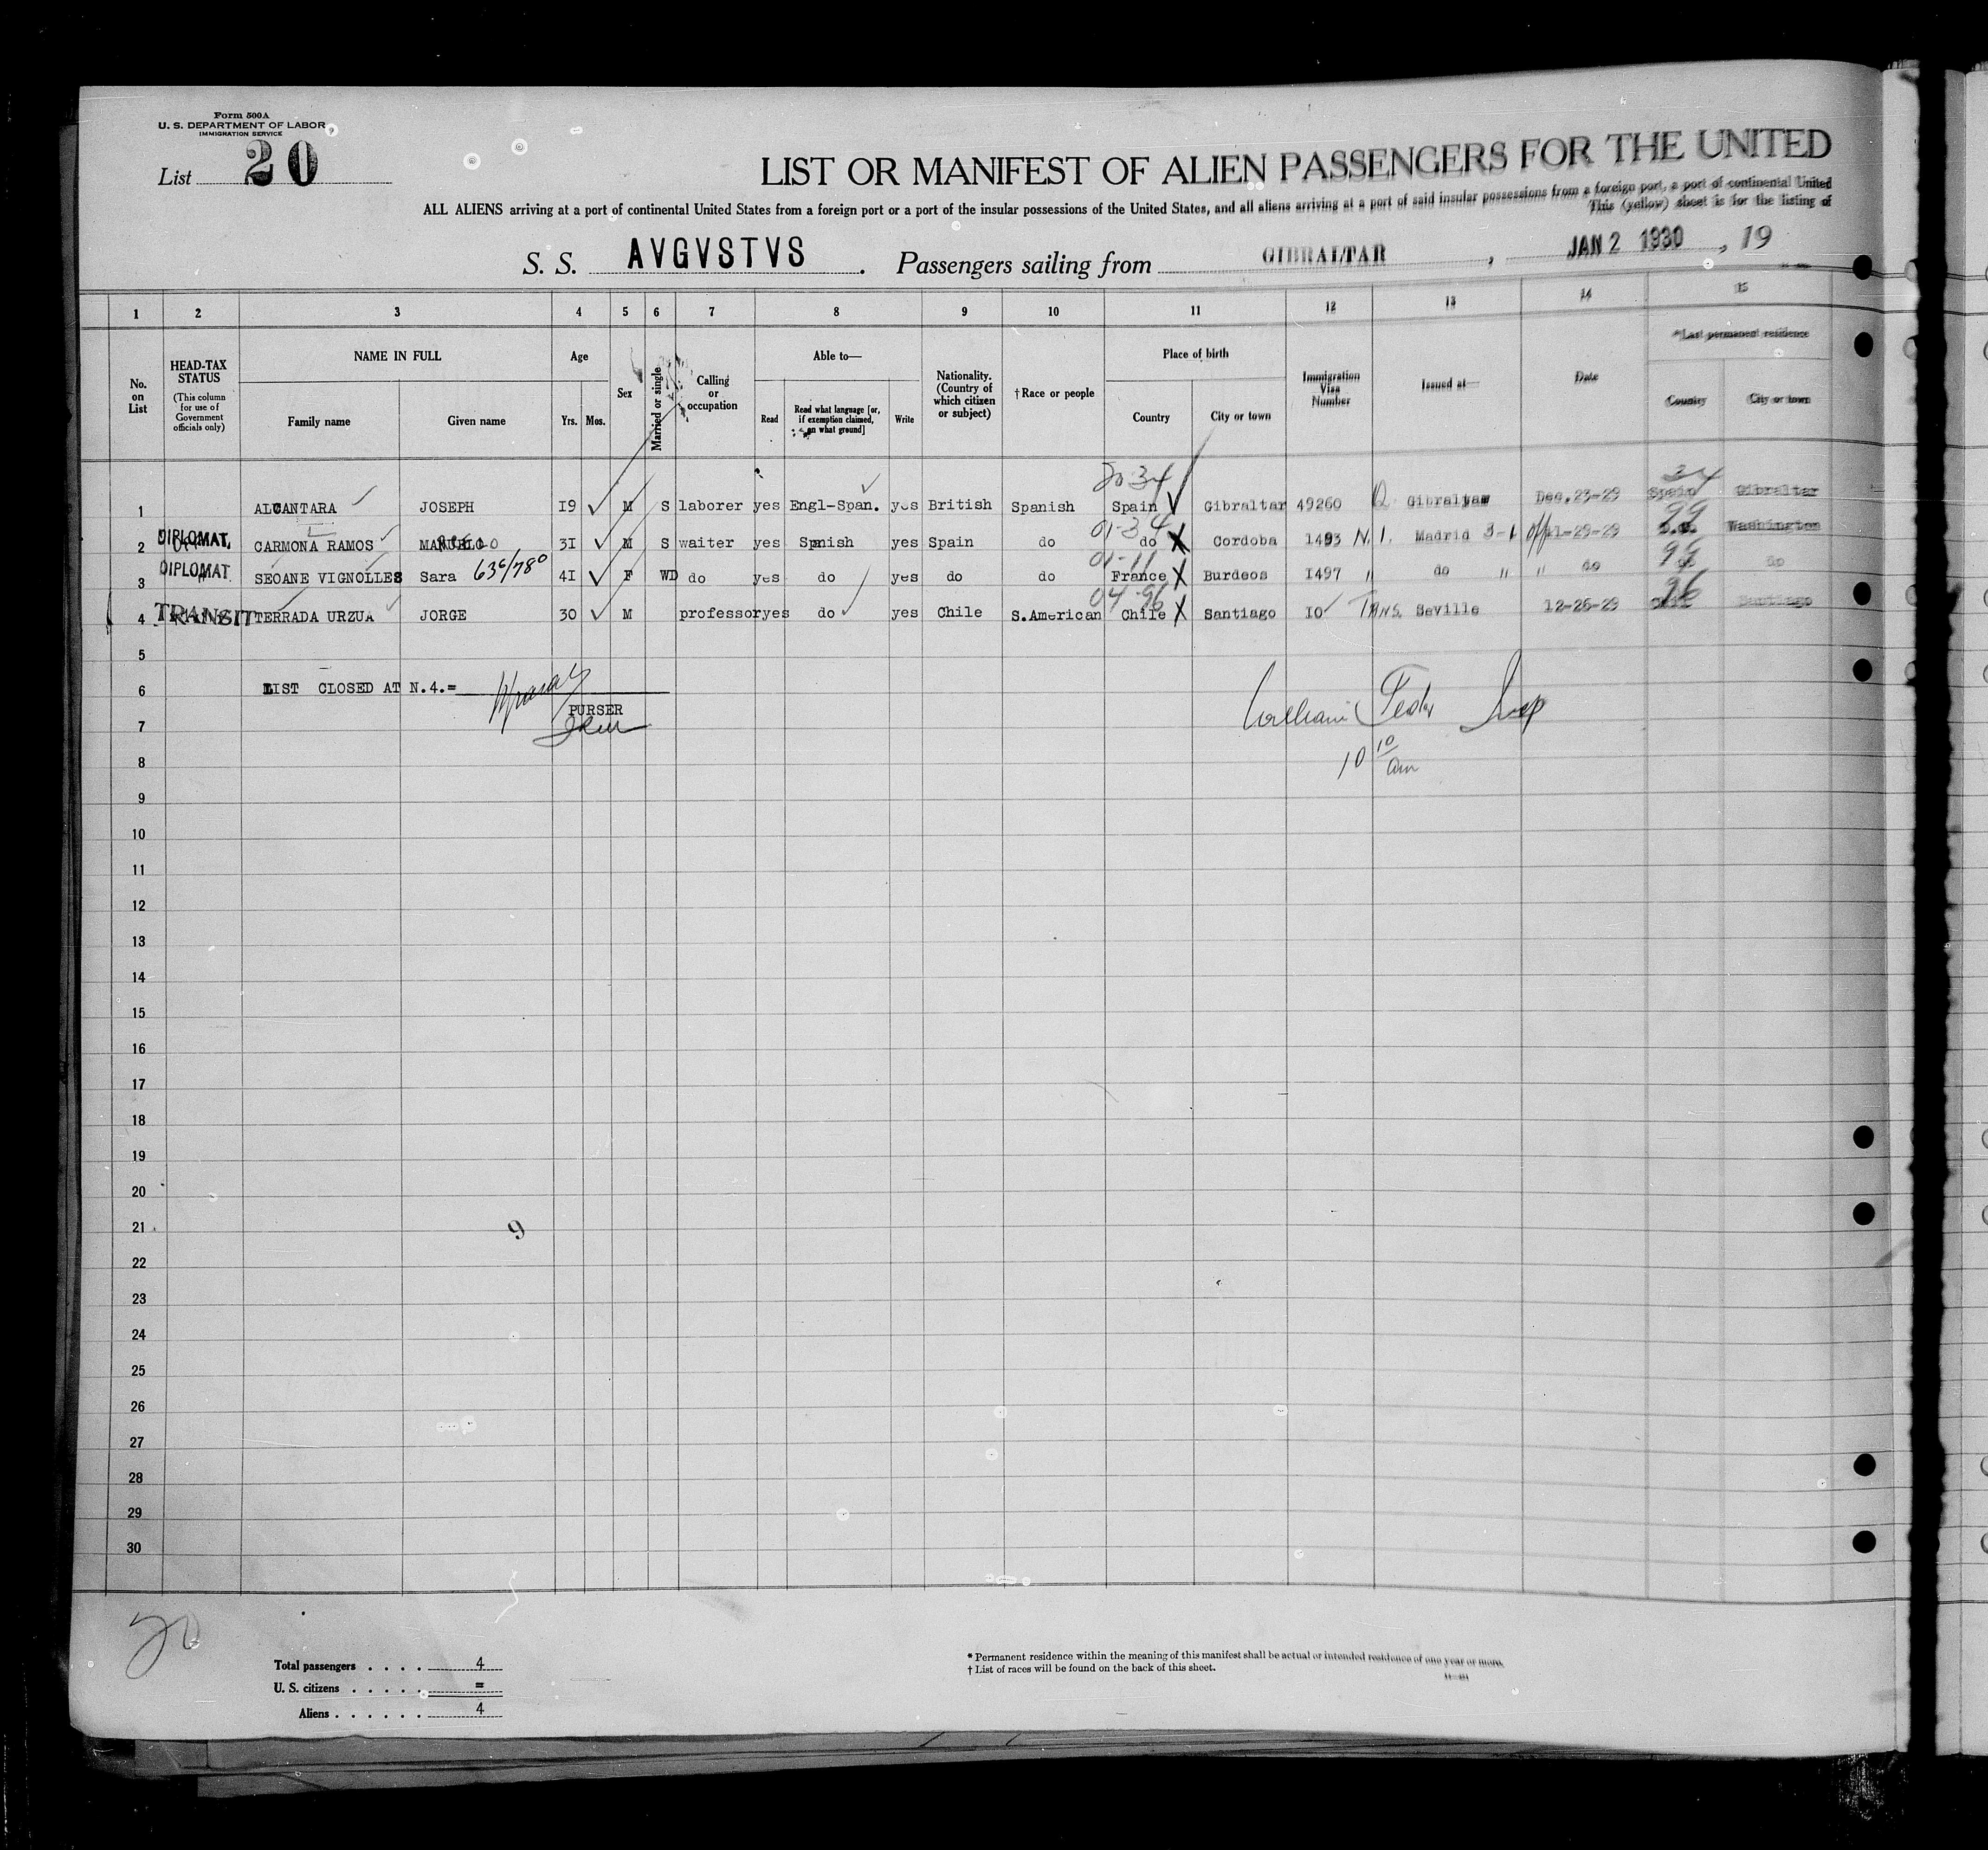 Form 500A
U. S. DEPARTMENT OF LABOR
IMMIGRATION SERVICE
List 20
LIST OR MANIFEST OF ALIEN PASSENGERS FOR THE UNITED
ALL ALIENS arriving at a port of continental United States from a foreign port or a port of the insular possessions of the United States, and all aliens arriving at a port of said insular possessions from a foreign port, a port of continental United
This (yellow) sheet is for the listing of
S. S. AVGVSTVS. Passengers sailing from GIBRALTAR, JAN 2 1930, 19
1 2 3 4 5 6 7 8 9 10 11 12 13 14 15
No. on List
HEAD-TAX STATUS (This column for use of Government officials only)
NAME IN FULL Family name Given name
Age Yrs. Mos.
Sex
Married or single
Calling or occupation
Able to— Read Read what language [or, if exemption claimed, on what ground] Write
Nationality. (Country of which citizen or subject)
† Race or people
Place of birth Country City or town
Immigration Visa Number
Issued at—
Date
*Last permanent residence Country City or town
20 34 34
1 ALCANTARA JOSEPH 19 M S laborer yes Engl-Span. yes British Spanish Spain Gibraltar 49260 Q Gibraltar Dec.23-29 Spain Gibraltar
01-34 99
2 DIPLOMAT. CARMONA RAMOS MARCELO 31 M S waiter yes Spanish yes Spain do do Cordoba 1493 N.I. Madrid 3-1 Off 11-29-29 U.S. Washington
01-11 99
3 DIPLOMAT SEOANE VIGNOLLES Sara 636/780 41 F WD do yes do yes do do France Burdeos 1497 " do " " do do do
04-96 26
4 TRANSIT TERRADA URZUA JORGE 30 M professor yes do yes Chile S.American Chile Santiago 10 TRNS. Seville 12-26-29 Chile Santiago
5
6 LIST CLOSED AT N.4.=
PURSER
William Insp
7
10 10/am
8
9
10
11
12
13
14
15
16
17
18
19
20
21 9
22
23
24
25
26
27
28
29
30
20
Total passengers . . . . 4
U. S. citizens . . . . . =
Aliens . . . . . . 4
* Permanent residence within the meaning of this manifest shall be actual or intended residence of one year or more.
† List of races will be found on the back of this sheet.